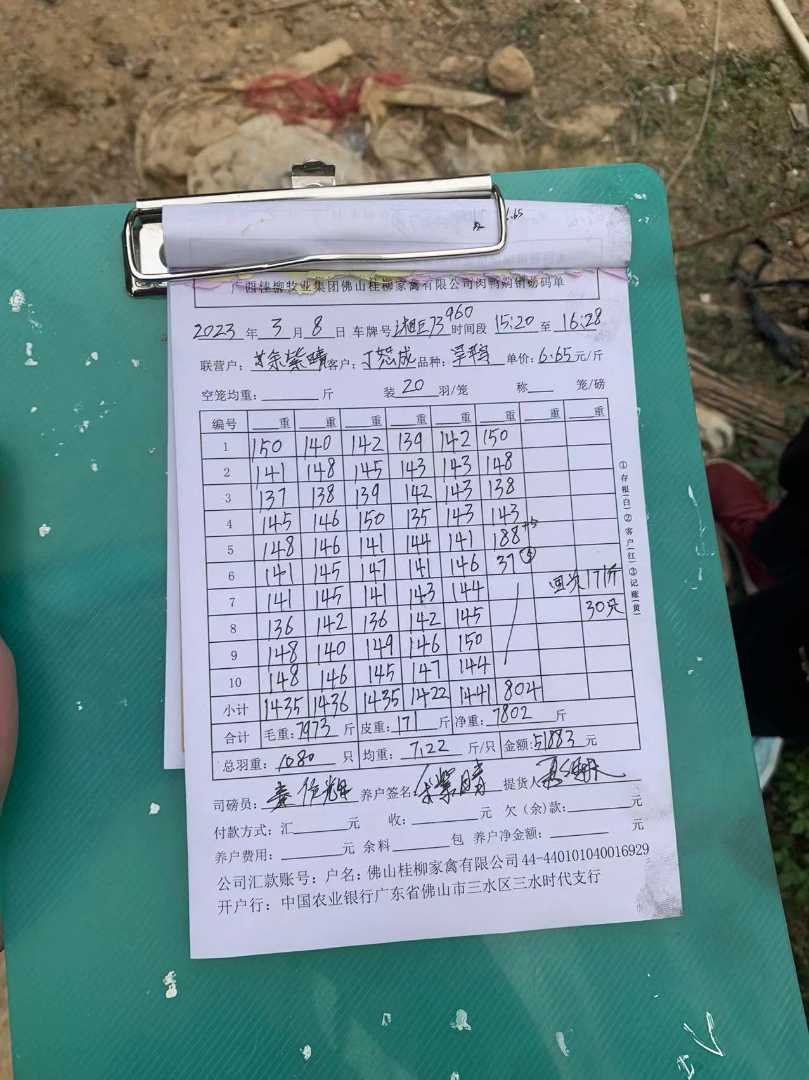 6.65
广西桂柳牧业集团佛山桂柳家禽有限公司肉鸭购销磅码单
2023 年 3 月 8 日 车牌号 960 时间段 15:20 至 16:28
联营户: 余紫晴 客户: 丁恕成 品种: 单价: 6.65 元/斤
空笼均重: 斤 装 20 羽/笼 称 笼/磅
编号 重 重 重 重 重 重 重 重
1 150 140 142 139 142 150
2 141 148 145 143 143 148
3 137 138 139 142 143 138
4 145 146 150 135 143 143
5 148 146 141 144 141 188 +5
6 141 145 147 141 146 37 ⑤
7 141 145 141 143 144 171斤
8 136 142 136 142 145 30只
9 148 140 149 146 150
10 148 146 145 147 144
小计 1435 1436 1435 1422 1441 804
合计 毛重: 7973 斤 皮重: 171 斤 净重: 7802 斤
总羽重: 1080 只 均重: 7.22 斤/只 金额: 51883 元
司磅员: 养户签名: 余紫晴 提货人
付款方式: 汇 元 收: 元 欠(余)款: 元
养户费用: 元 余料 包 养户净金额: 元
公司汇款账号: 户名: 佛山桂柳家禽有限公司 44-440101040016929
开户行: 中国农业银行广东省佛山市三水区三水时代支行
①存根(白)②客户(红)③记账(黄)